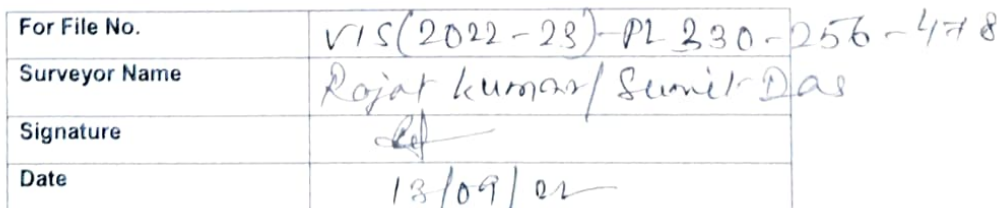 For File No. VIS(2022-23)-PL330-256-478
Surveyor Name Rajat Kumar/ Sumit Das
Signature
Date 13/09/22